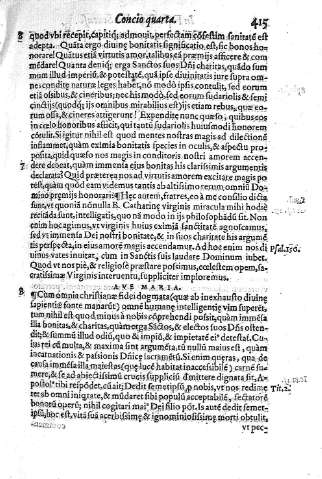 Concio quarta. 415
8 quod vbi recepit, capitiq; admouit, perfectam cõfestim sanitatẽ est
adepta. Quãta ergo diuinę bonitatis significatio est, sic bonos ho-
norare! Quãtus etiã virtutis amor, talibus eã præmijs afficere & com
mẽdare! Quanta deniq; erga Sanctos suos Dñi charitas, quãdo sum
mum illud imperiũ, & potestatẽ, quã ipse diuinitatis iure supra om-
nes conditę naturę leges habet, nõ modò ipsis contulit, sed eorum
etiã ossibus, & cineribus; nec his modò, sed eorum sudariolis & semi
cinctijs (quodq; ijs omnibus mirabilius est) ijs etiam rebus, quæ eo-
rum ossa, & cineres attigerunt! Expendite nunc quęso, quibus eos
in cœlo honoribus afficit, qui tanti sudariolis huiusmodi honorem
cõculit. Si igitur nihil est quod mentes nostras magis ad dilectionẽ
inflammet, quàm eximia bonitatis species in oculis, & aspectu pro-
posita, quid quęso nos magis in conditoris nostri amorem accen-
7 dere debeat, quàm immensa eius bonitas his clarissimis argumentis
declarata? Quid præterea nos ad virtutis amorem excitare magis po
test, quàm quòd eam videmus tantis ab altissimo rerum omniũ Do-
mino præmijs honorari? Hęc autem, fratres, eo à me consilio dicta
sunt, vt quoniã nõnulla B. Catharinę virginis miracula mihi hodie
recitãda sunt, intelligatis, quo nã modo in ijs philosophãdũ sit. Non
enim hoc agimus, vt virginis huius eximiã sanctitatẽ agnoscamus,
sed vt immensa Dei nostri bonitate, & in suos charitate his argumẽ
tis perspecta, in eius amorẽ magis accendamur. Ad hoc enim nos di Psal.150.
uinus vates inuitat, cum in Sanctis suis laudare Dominum iubet.
Quod vt nos piè, & religiosè præstare possimus, cœlestem opem, sa-
cratissimæ Virginis interuentu, suppliciter imploremus.
AVE MARIA.
8 ¶ Cum omnia christianæ fidei dogmata (quæ ab inexhausto diuinę
sapientię fonte manarũt) omne humanę intelligentię vim superẽt,
tum nihil est quod minus à nobis cõprehendi possit, quàm immẽsa
illa bonitas, & charitas, qua erga Sãctos, & electos suos Dñs osten-
dit; & summũ illud odiũ, quo & impiũ, & impietatẽ ei9 detestat. Cu-
ius rei cũ multa, & maxima sint argumẽta, tũ nullũ maius est, quàm
incarnationis & passionis Dñicę sacramẽtũ. Si enim quæras, qua de
causa immẽsa illa maiestas (quę lucẽ habitat inaccessibilẽ) carnẽ su-
mere, & se ad abiectissimũ crucis suppliciũ dimittere dignata sit, A-
postol9 tibi respõdet, cũ ait; Dedit semetipsũ p nobis, vt nos redime Tit.2.
ret ab omni inigrate, & mũdaret sibi populũ acceptabilẽ, sectatorẽ
bonorũ operũ; nihil cogitari mai9 Dei filio põt. Is autẽ dedit semet-
ipsũ, hoc est, vitã suã acerbissimę & ignominiosissimę morti obtulit,
vt pec-